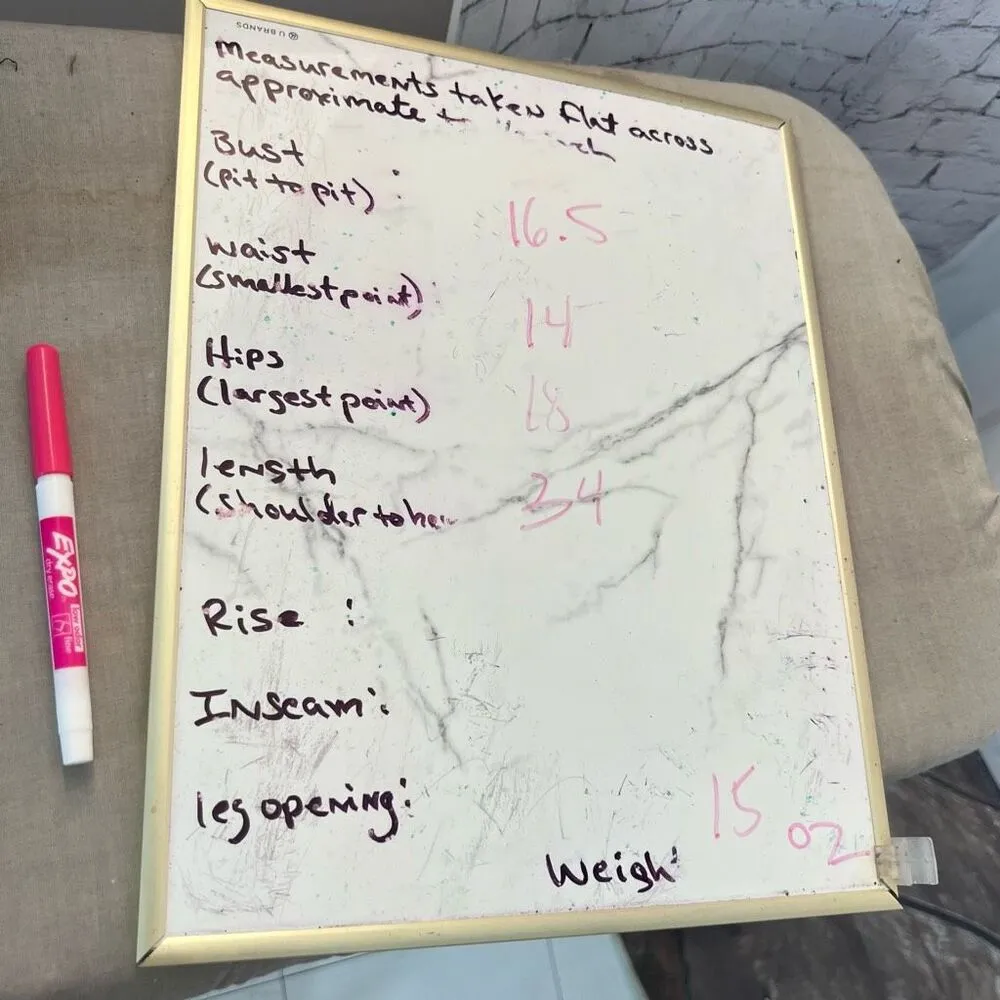 U BRANDS
Measurements taken flat across
approximate
Bust
(pit to pit) :
16.5
Waist
(smallest point) :
14
Hips
(largest point)
18
length
(shoulder to
34
Rise :
Inseam :
leg opening :
15 oz
Weigh
EXPO
dry erase
low odor
fine